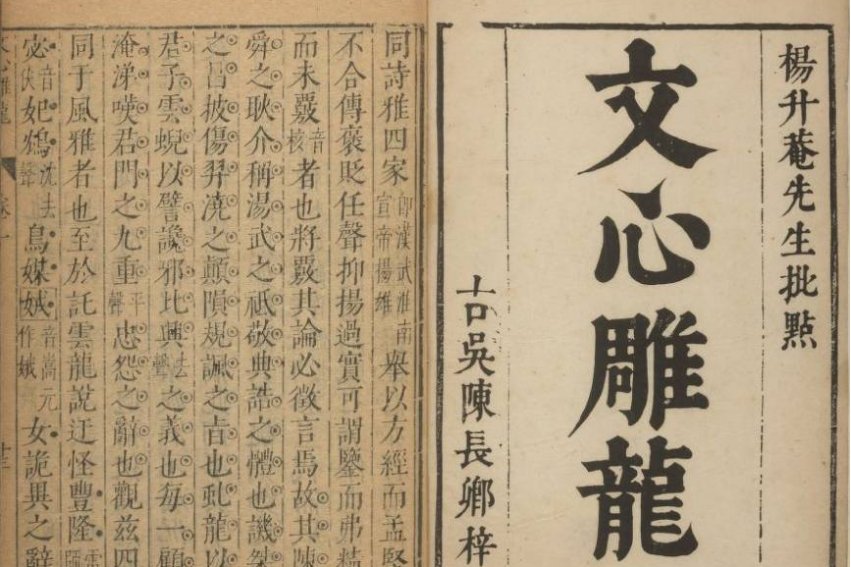 楊升菴先生批點
文心雕龍
古吳陳長卿梓
同詩雅四家即漢武淮南宣帝揚雄舉以方經而孟堅
不合傳褒貶任聲抑揚過實可謂鑒而弗精
而未覈音核者也將覈其論必徵言焉故其陳
舜之耿介稱湯武之祗敬典誥之體也譏桀
之昌披傷羿澆之顛隕規諷之旨也虬龍以
君子雲蜺以譬讒邪比興去聲之義也每一顧
淹涕嘆君門之九重平聲忠怨之辭也觀茲四
同于風雅者也至於託雲龍說迂怪豐隆
宓音伏妃鴆沈去聲鳥媒娀音嵩元作娥女詭異之辭
文心雕龍
卷一
十三